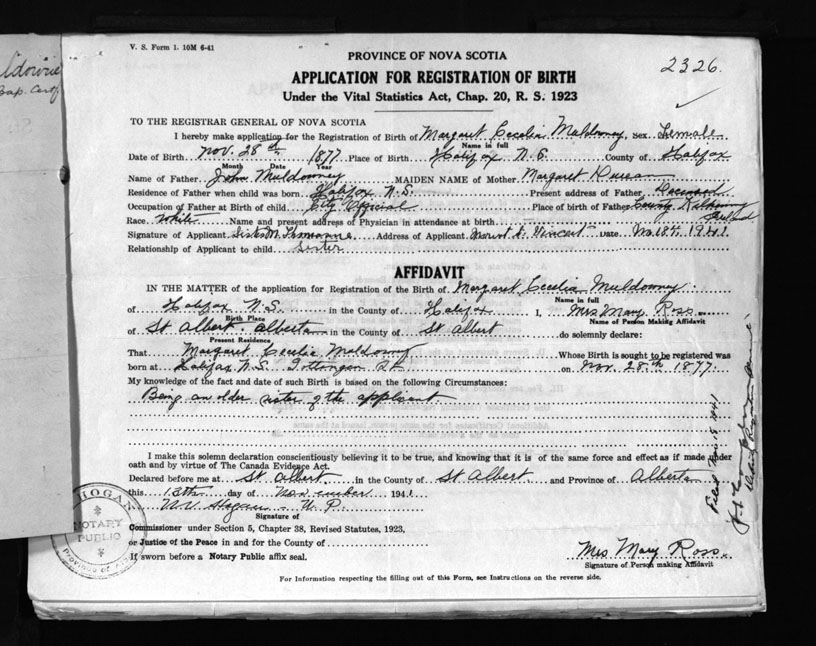 V. S. Form 1. 10M 6-41
PROVINCE OF NOVA SCOTIA
2326
APPLICATION FOR REGISTRATION OF BIRTH
Under the Vital Statistics Act, Chap. 20, R. S. 1923
TO THE REGISTRAR GENERAL OF NOVA SCOTIA
I hereby make application for the Registration of Birth of Margaret Cecelia Muldowney Sex Female
Name in full
Date of Birth Nov. 28th 1877 Place of Birth Halifax N. S. County of Halifax
Month Date Year
Name of Father John Muldowney MAIDEN NAME of Mother Margaret
Residence of Father when child was born Halifax N.S. Present address of Father Deceased
Occupation of Father at Birth of child City Official Place of birth of Father County Kilkenny Ireland
Race White Name and present address of Physician in attendance at birth
Signature of Applicant Sister M. Address of Applicant Mount St. Vincent Date Nov. 18th 1941.
Relationship of Applicant to child Sister
AFFIDAVIT
IN THE MATTER of the application for Registration of the Birth of Margaret Cecelia Muldowney
Name in full
of Halifax N.S. in the County of Halifax I, Mrs Mary Ross
Birth Place Name of Person Making Affidavit
of St Albert. Alberta in the County of St Albert do solemnly declare:
Present Residence
That Margaret Cecelia Muldowney Whose Birth is sought to be registered was
born at Halifax N.S. Gottongen St on Nov. 28th 1877.
My knowledge of the fact and date of such Birth is based on the following Circumstances:
Being an older sister of the applicant
I make this solemn declaration conscientiously believing it to be true, and knowing that it is of the same force and effect as if made under
oath and by virtue of The Canada Evidence Act.
Declared before me at St. Albert. in the County of St Albert. and Province of Alberta
this 13th day of November 1941.
Hogan N. P.
Signature of
Commissioner under Section 5, Chapter 38, Revised Statutes, 1923,
or Justice of the Peace in and for the County of
If sworn before a Notary Public affix seal.
Mrs Mary Ross.
Signature of Person making Affidavit
For Information respecting the filling out of this Form, see Instructions on the reverse side.
HOGAN
NOTARY
PUBLIC
Province of
Filed Nov. 18 1941
Bap. Certf